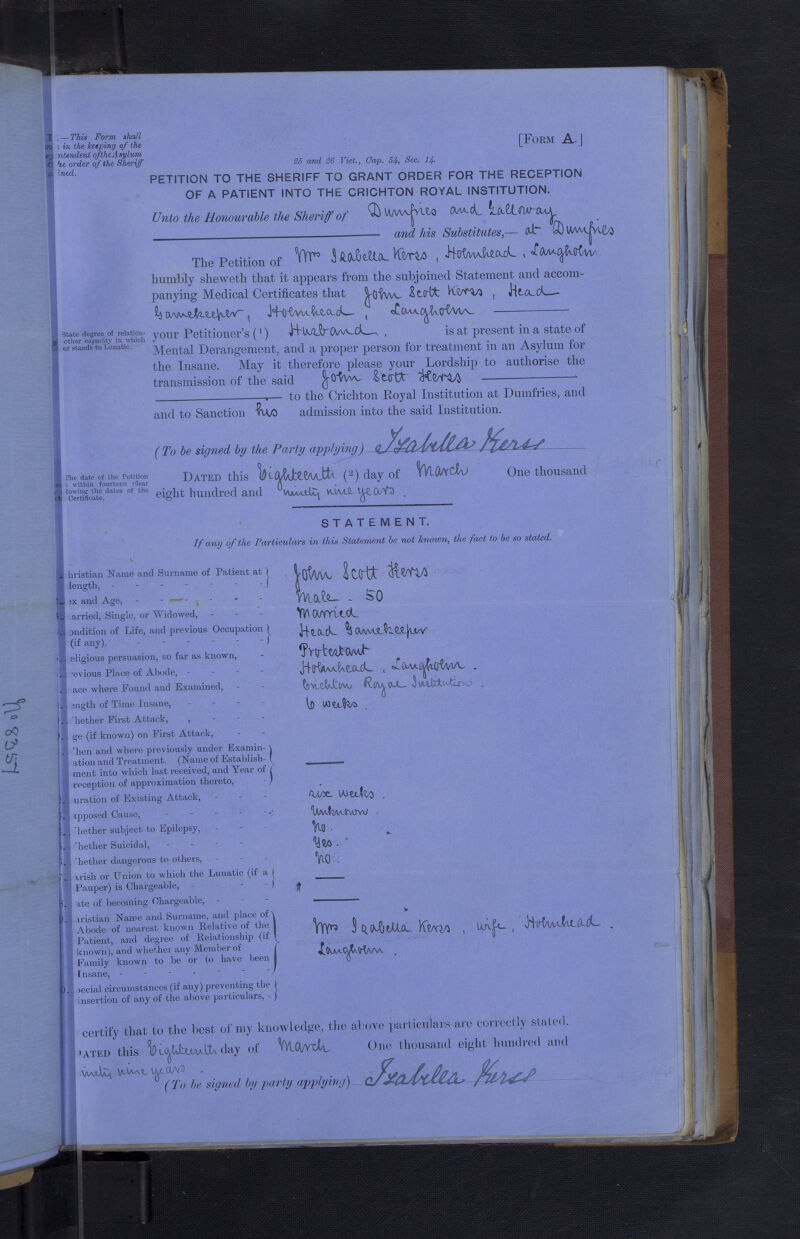 .—This Form shall
in the keeping of the
ntendent of the Asylum
he order of the Sheriff
ined.
[FORM A.]
25 and 26 Vict., Cap. 54, Sec. 14.
PETITION TO THE SHERIFF TO GRANT ORDER FOR THE RECEPTION
OF A PATIENT INTO THE CRICHTON ROYAL INSTITUTION.
Unto the Honourable the Sheriff of Dumfries and Galloway
and his Substitutes,— at Dumfries
The Petition of Mrs Isabella Kerss, Holmhead, Langholm
humbly sheweth that it appears from the subjoined Statement and accom-
panying Medical Certificates that John Scott Kerss, Head
Gamekeeper, Holmhead, Langholm
State degree of relation-
other capacity in which
er stands to Lunatic.
your Petitioner's (1) Husband, is at present in a state of
Mental Derangement, and a proper person for treatment in an Asylum for
the Insane. May it therefore please your Lordship to authorise the
transmission of the said John Scott Kerss
to the Crichton Royal Institution at Dumfries, and
and to Sanction his admission into the said Institution.
(To be signed by the Party applying) Isabella Kerss
The date of the Petition
within fourteen clear
lowing the dates of the
Certificate.
DATED this Eighteenth (2) day of March One thousand
eight hundred and ninety nine years.
STATEMENT.
If any of the Particulars in this Statement be not known, the fact to be so stated.
hristian Name and Surname of Patient at
length, - John Scott Kerss
ex and Age, - Male - 50
arried, Single, or Widowed, - Married
ondition of Life, and previous Occupation
(if any), - Head Gamekeeper
eligious persuasion, so far as known, - Protestant
revious Place of Abode, - Holmhead, Langholm.
ace where Found and Examined, - Crichton Royal Institution.
ength of Time Insane, - 6 weeks.
hether First Attack, -
ge (if known) on First Attack, -
hen and where previously under Examin-
ation and Treatment. (Name of Establish-
ment into which last received, and Year of
reception of approximation thereto, -
uration of Existing Attack, - six weeks.
upposed Cause, - Unknown.
hether subject to Epilepsy, - No.
hether Suicidal, - Yes.
hether dangerous to others, - No.
arish or Union to which the Lunatic (if a
Pauper) is Chargeable, -
ate of becoming Chargeable, -
ristian Name and Surname, and place of
Abode of nearest known Relative of the
Patient, and degree of Relationship (if
known), and whether any Member of
Family known to be or to have been
Insane, -
Mrs Isabella Kerss, wife, Holmhead.
Langholm.
pecial circumstances (if any) preventing the
insertion of any of the above particulars, -
certify that to the best of my knowledge, the above particulars are correctly stated.
DATED this Eighteenth day of March One thousand eight hundred and
ninety nine years.
(To be signed by party applying) Isabella Kerss
No 837